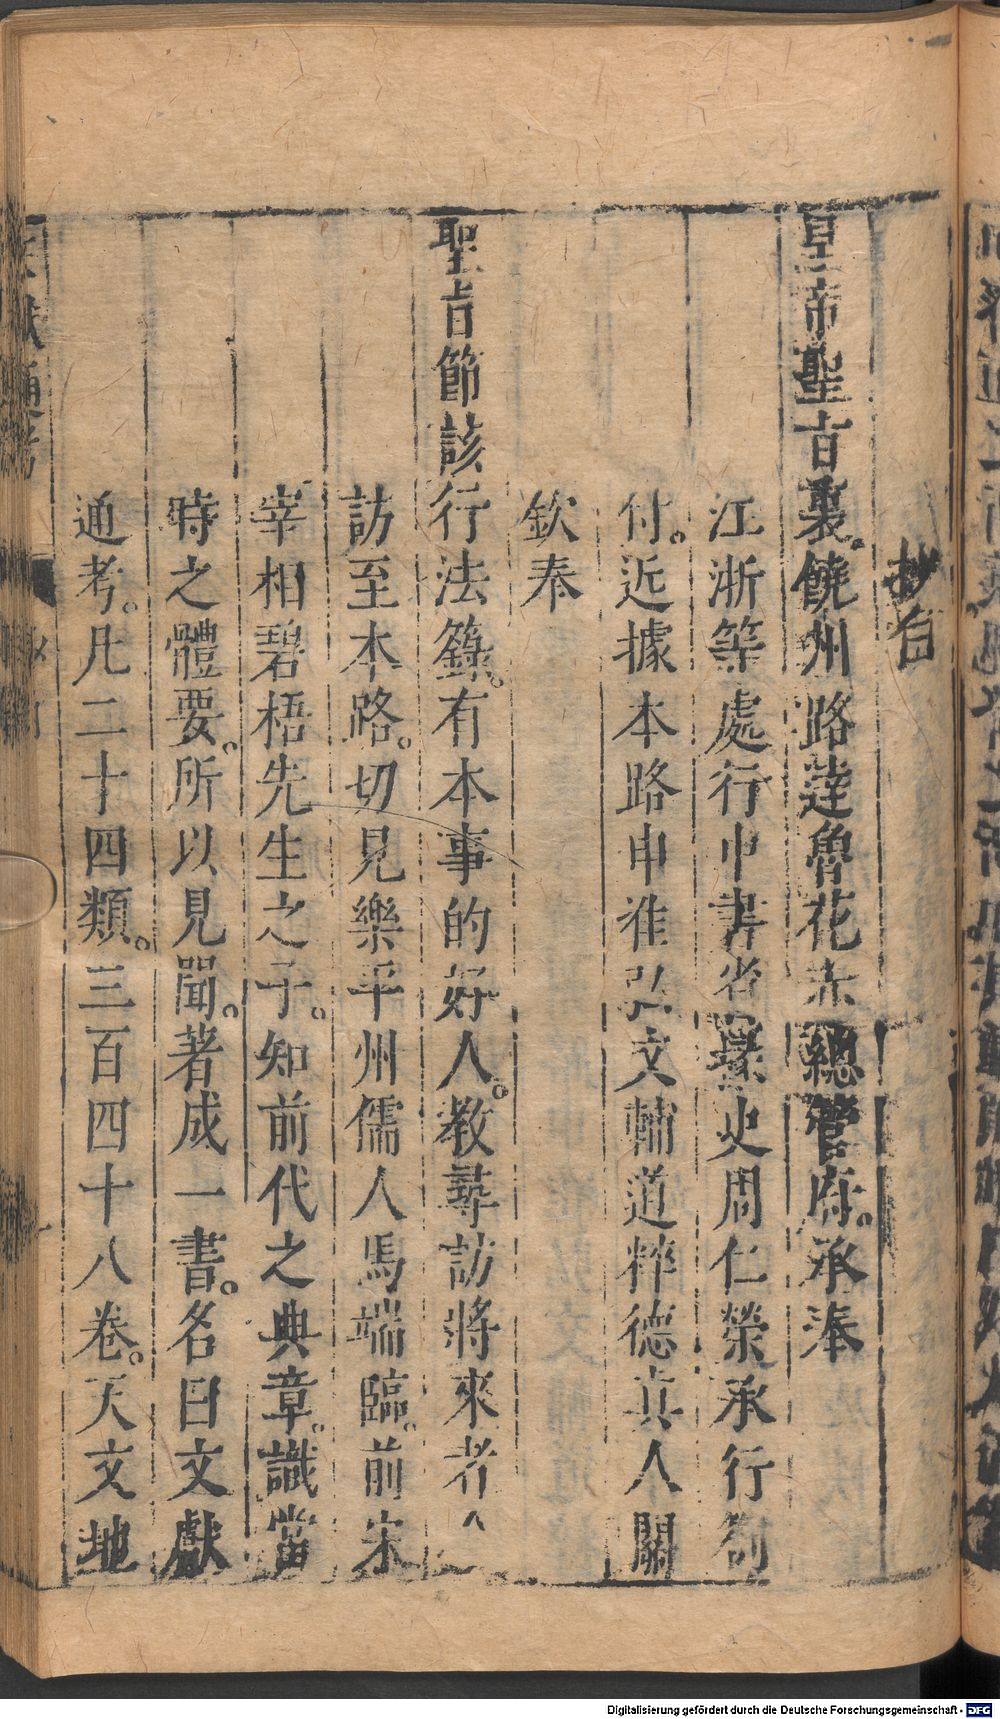 抄白
皇帝聖旨裏。饒州路達魯花赤總管府。承奉
江浙等處行中書省掾史周仁榮承行劄
付。近據本路申准弘文輔道粹德真人關
欽奉
聖旨節該行法籙。有本事的好人。教尋訪將來者
訪至本路。切見樂平州儒人馬端臨。前宋
宰相碧梧先生之子。知前代之典章。識當
時之體要。所以見聞。著成一書。名曰文獻
通考。凡二十四類。三百四十八卷。天文地
文獻通考
Digitalisierung gefördert durch die Deutsche Forschungsgemeinschaft - DFG